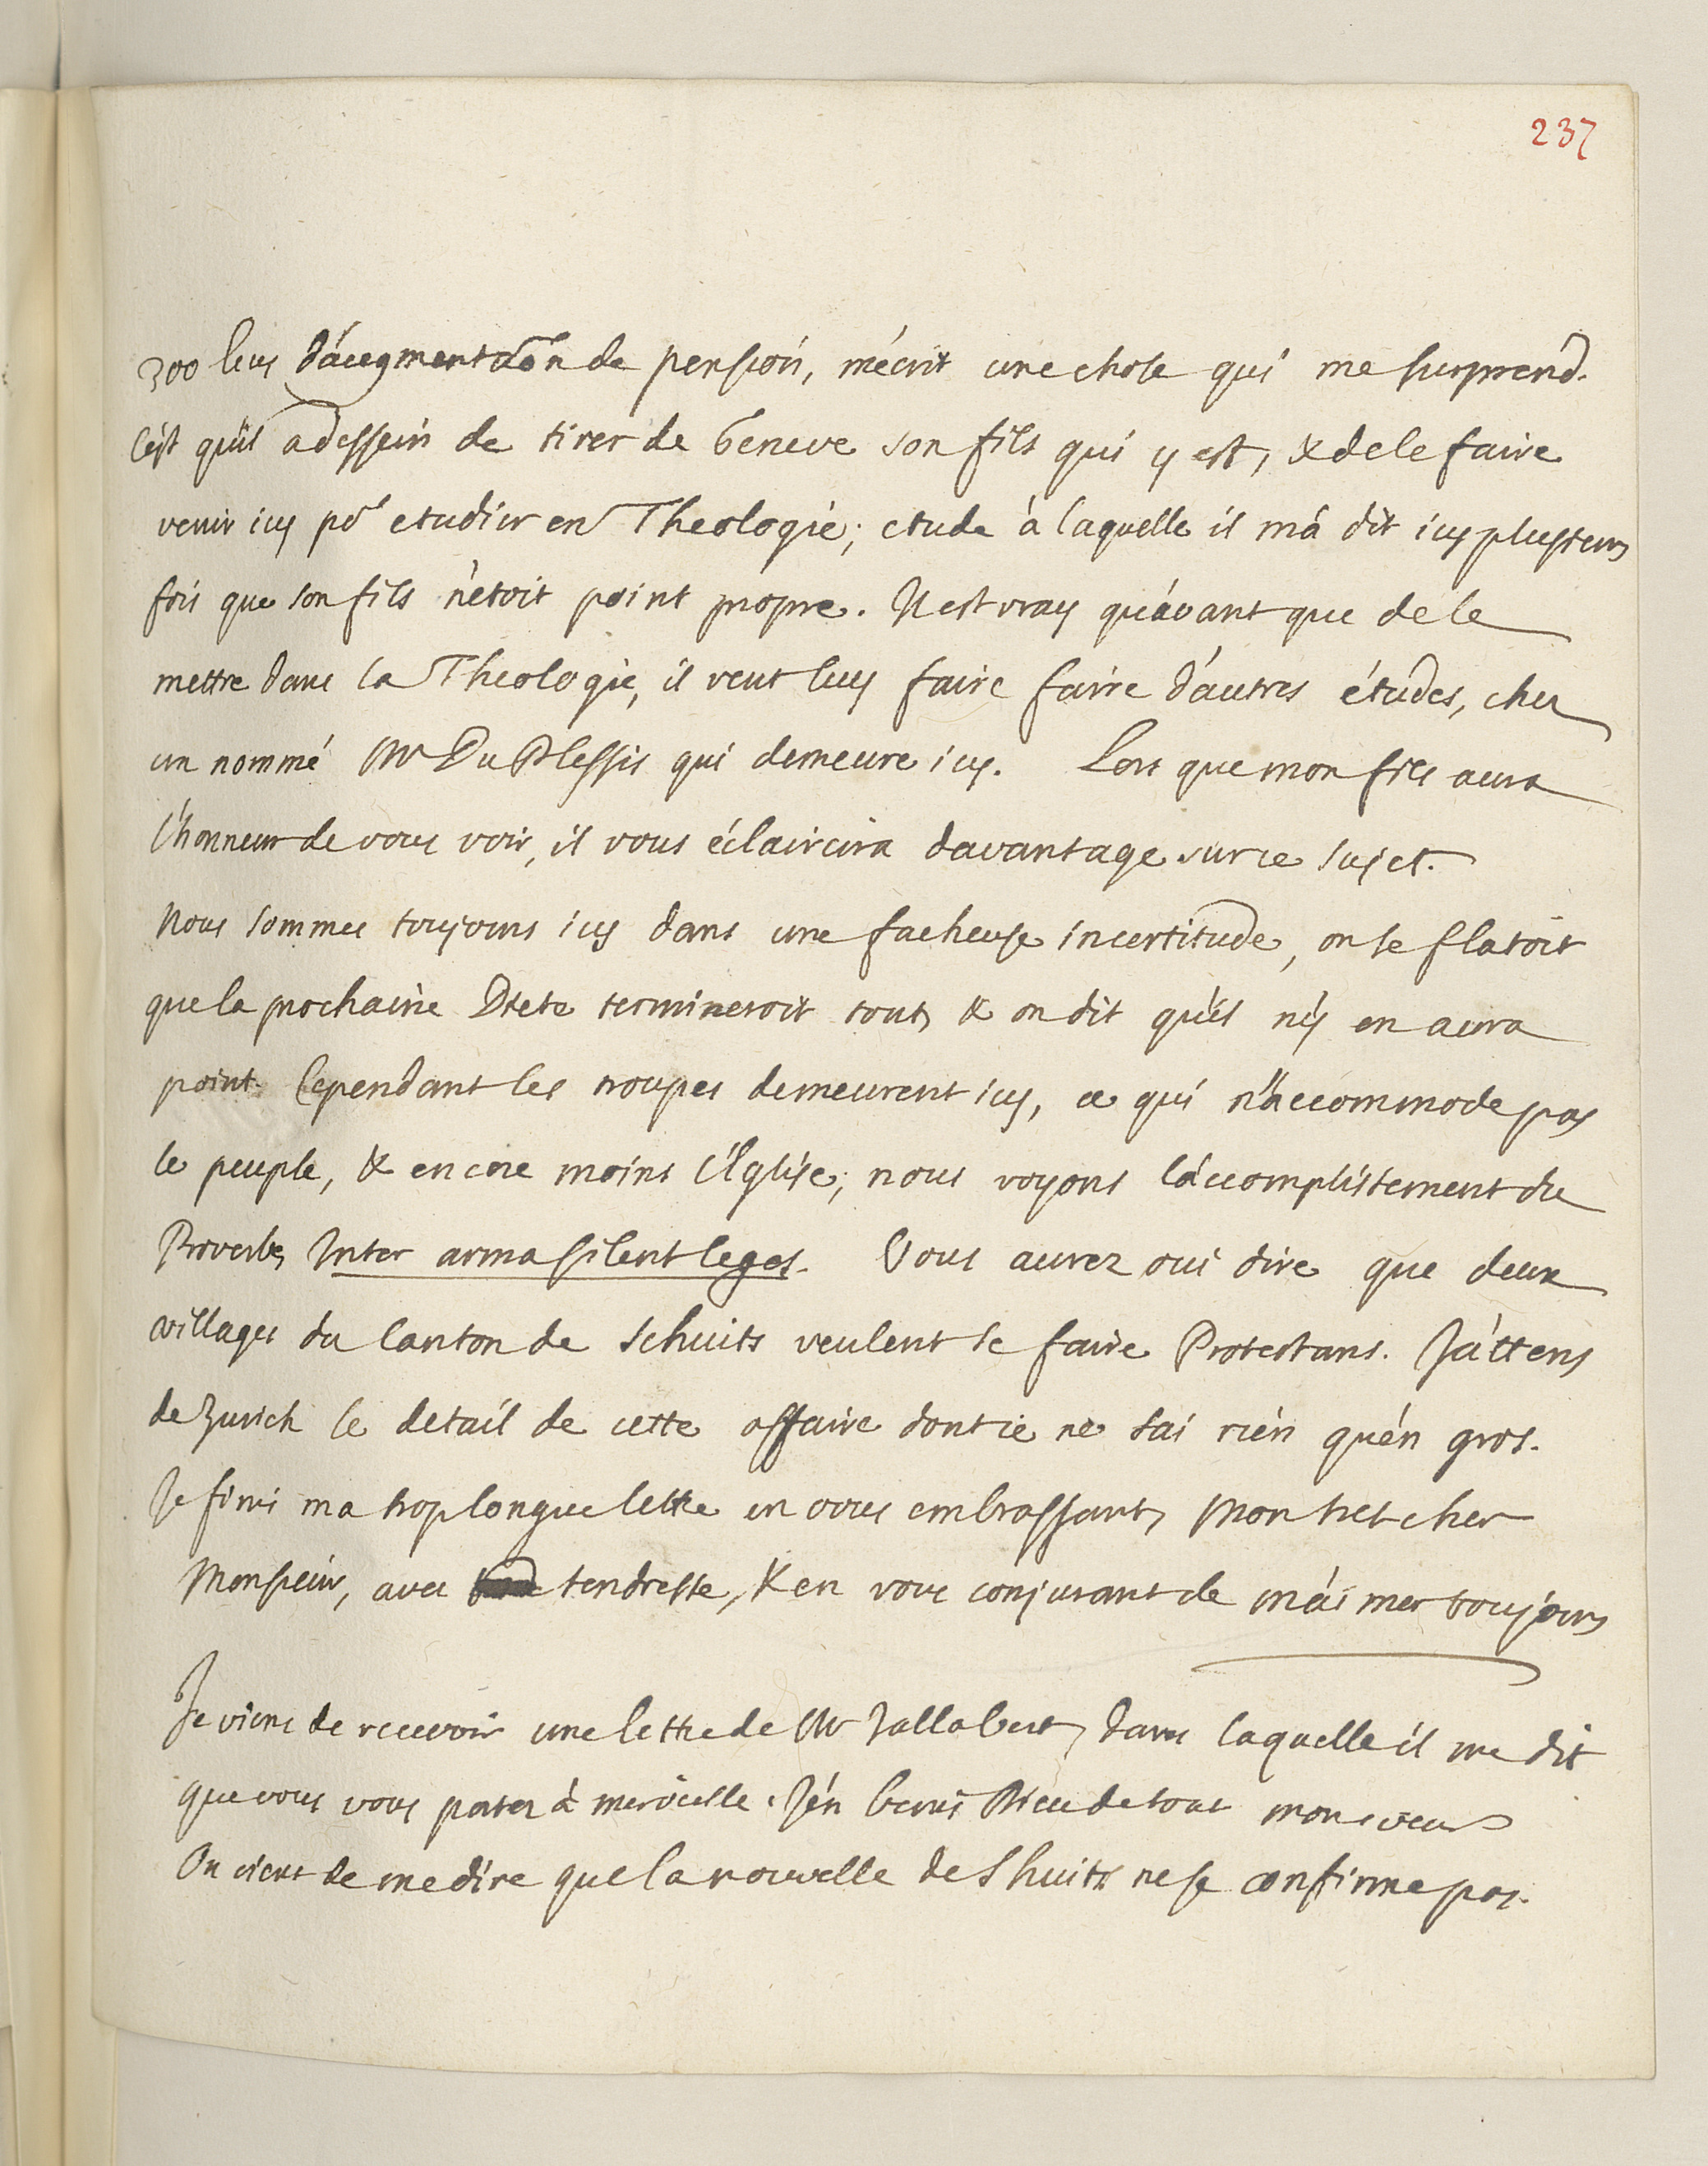 237
300 leus d'augmentaõn de pension, m'écrit une chose qui me surprend.
C'est qu'il a dessein de tirer de Geneve son fils qui y est, & de le faire
venir icy pr etudier en Theologie; etude à laquelle il m'a dit icy plusieurs
fois que son fils n'etoit point propre. Il est vray qu'avant que de le
mettre dans la Theologie, il veut luy faire faire d'autres études, chez
un nommé Mr Du Plessis qui demeure icy. Lors que mon fils aura
l'honneur de vous voir, il vous éclaircira davantage sur ce sujet.
Nous sommes toujours icy dans une facheuse incertitude, on se flatoit
que la prochaine Diete termineroit tout, & on dit qu'il n'y en aura
point. Cependant les troupes demeurent icy, ce qui n'accommode pas
le peuple, & encore moins l'Eglise; nous voyons l'accomplissement du
Proverbe, Inter arma silent leges. Vous aurez oui dire que deux
villages du Canton de Schuits veulent se faire Protestans. J'attens
de Zurich le detail de cette affaire dont ie ne sai rien qu'en gros.
Je finis ma trop longue lettre en vous embrassant, Mon tres cher
Monsieur, avec tendresse, & en vous conjurant de m'aimer toujours
Je viens de recevoir une lettre de Mr Jallabert, dans laquelle il me dit
que vous vous portez à merveille. J'en benis Dieu de tout mon coeur
On vient de me dire que la nouvelle de Shuits ne se confirme pas.